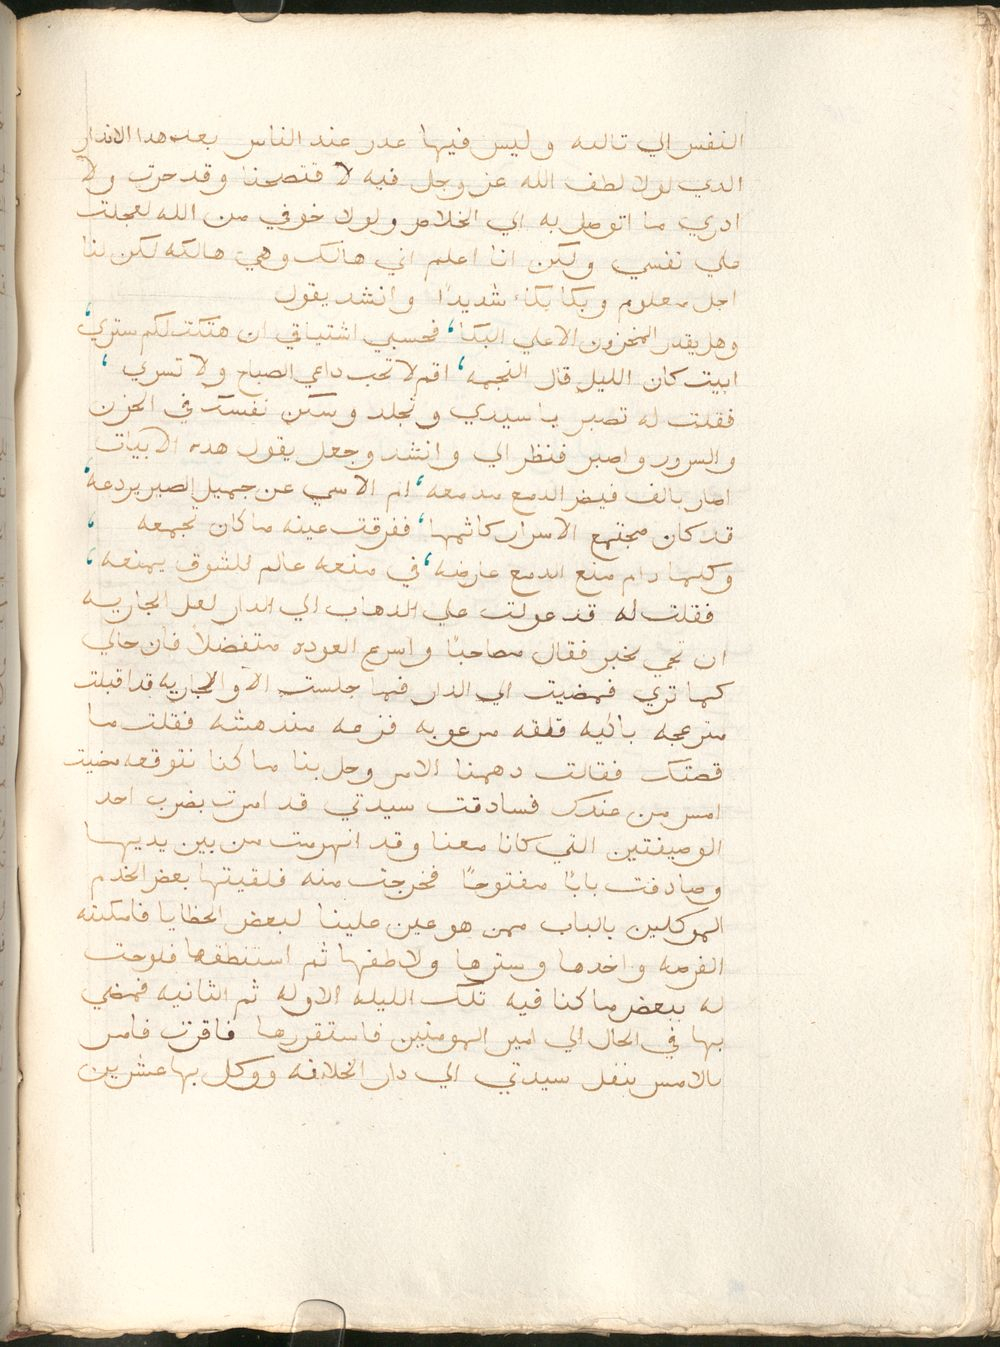 النفس الي تالته وليس فيها عدر عند الناس بعد هدا الاندار
الدي لولا لطف الله عز وجل فيه لا فتضحنا وقد حرت ولا
ادري ما اتوصل به الي الخلاص ولولا خوفي من الله لعجلت
علي نفسي ولكن انا اعلم اني هالك وهي هالكه لكن لنا
اجل معلوم وبكا بكاء شديدًا وانشد يقول
وهل يقدر المحزون الا علي البكا، فحسبي اشتياقي ان هتكت لكم ستري،
ابيت كان الليل قال النجمه، اقم لا تحب داعي الصباح ولا تسري،
فقلت له تصبر يا سيدي وتجلد وسكن نفسك في الحزن
والسرور واصبر فنظر الي وانشد وجعل يقول هده الابيات
اصار بالف فيض الدمع مدمعه، ام الاسي عن جميل الصبر يردعه،
قد كان مجتمع الاسرار كاتمها، ففرقت عينه ما كان تجمعه،
وكلما دام منع الدمع عارضه، في منعه عالم للشوق يمنعه،
فقلت له قد عولت علي الدهاب الي الدار لعل الجاريه
ان تجي بخبر فقال مصاحبًا واسرع العوده متفضلا فان حالي
كما تري فمضيت الي الدار فما جلست الا والجاريه قد اقبلت
منزعجه باكيه قلقه مرعوبه فزعه مندهشه فقلت ما
قصتك فقالت دهمنا الامر وحل بنا ما كنا نتوقعه مضيت
امس من عندك فصادفت سيدتي قد امرت بضرب احد
الوصيفتين التي كانا معنا وقد انهرمت من بين يديها
وصادفت بابًا مفتوحًا فخرجت منه فلقيتها بعض الخدم
الموكلين بالباب ممن هو عين علينا لبعض الحظايا فامكنته
الفرصه واخدها وسترها ولاطفها ثم استنطقها فلوحت
له ببعض ما كنا فيه تلك الليله الاوله ثم الثانيه فمضي
بها في الحال الي امير المومنين فاستقررها فاقرت فامر
بالامس بنقل سيدتي الي دار الخلافه ووكل بها عشرين